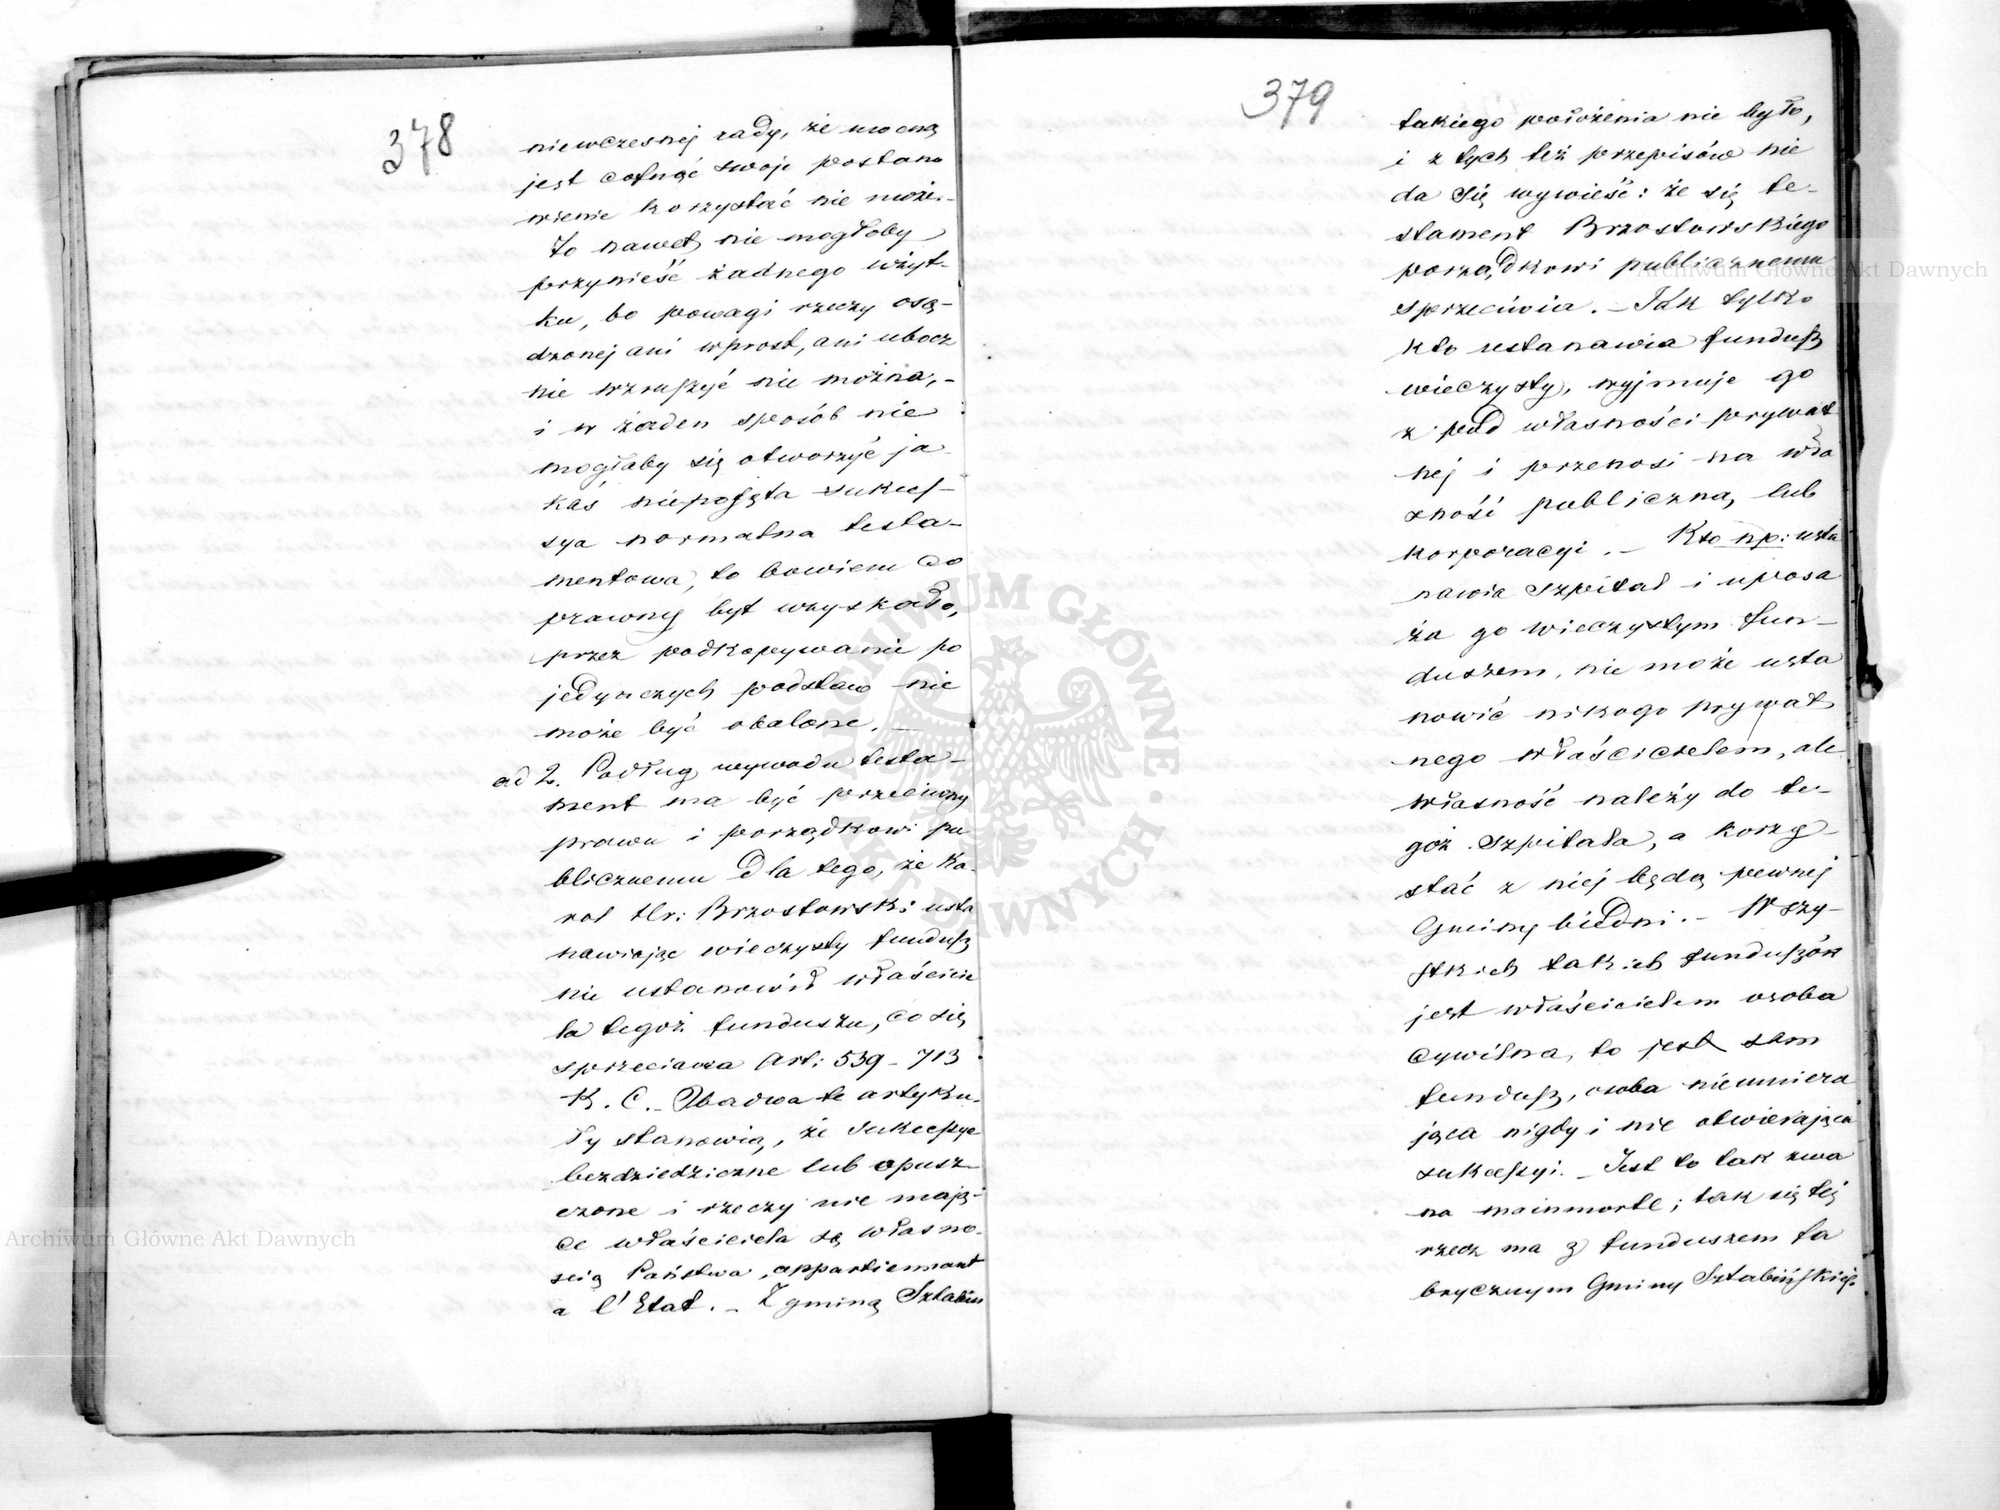 378
niewczesnej rady, że mocną
jest cofnąć swoje postano
wienie korzystać nie może.-
To nawet nie mogłoby
przynieść żadnego użyt-
ku, bo powagi rzeczy osą-
dzonej ani wprost, ani ubocz
nie wzruszyć nie można,-
i w żaden sposób nie
mogłaby się otworzyć ja-
kaś niepojęta sukces-
sya normalna testa-
mentowa, to bowiem co
prawny byt uzyskało,
przez podkopywanie po
jedynczych podstaw nie
może być obalone. —
ad 2. Podług wywodu testa-
ment ma być przeciwny
prawu i porządkowi pu
blicznemu dla tego, że Ka-
rol Hr: Brzostowski usta
nawiając wieczysty fundusz
nie ustanowił właścicie
la tegoż funduszu, co się
sprzeciwia Art: 539 - 713
K. C. - Obadwa te artyku-
ły stanowią, że sukcessye
bezdziedziczne lub opusz-
czone i rzeczy nie mają-
ce właściciela są własno-
scią Państwa, appartiennent
a l'Etat. - Z gminą Sztabin
379
takiego położenia nie było,
i z tych też przepisów nie
da się wywieść: że się te-
stament Brzostowskiego
porządkowi publicznemu
sprzeciwia. - Jak tylko
kto ustanawia fundusz
wieczysty, wyjmuje go
z pod własności prywat
nej i przenosi na wła
sność publiczną, lub
korporacyi. - Kto np: usta
nawia szpital i uposa
ża go wieczystym fun-
duszem, nie może usta
nowić nikogo prywat
nego właścicielem, ale
własność należy do te-
goż szpitala, a korzy-
stać z niej będą pewnej
Gminy biedni. - Wszy-
stkich takich funduszów
jest właścicielem osoba
cywilna, to jest sam
fundusz, osoba nieumiera
jąca nigdy i nie otwierająca
sukcessyi. - Jest to tak zwa
na mainmorte; tak się też
rzecz ma z funduszem fa
brycznym Gminy Sztabińskiej.
Archiwum Główne Akt Dawnych
Archiwum Główne Akt Dawnych
ARCHIWUM GŁÓWNE AKT DAWNYCH